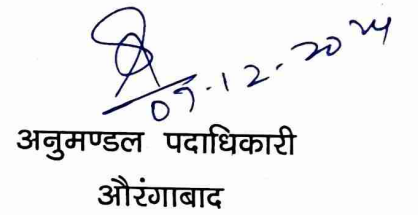 09.12.2024
अनुमण्डल पदाधिकारी
औरंगाबाद